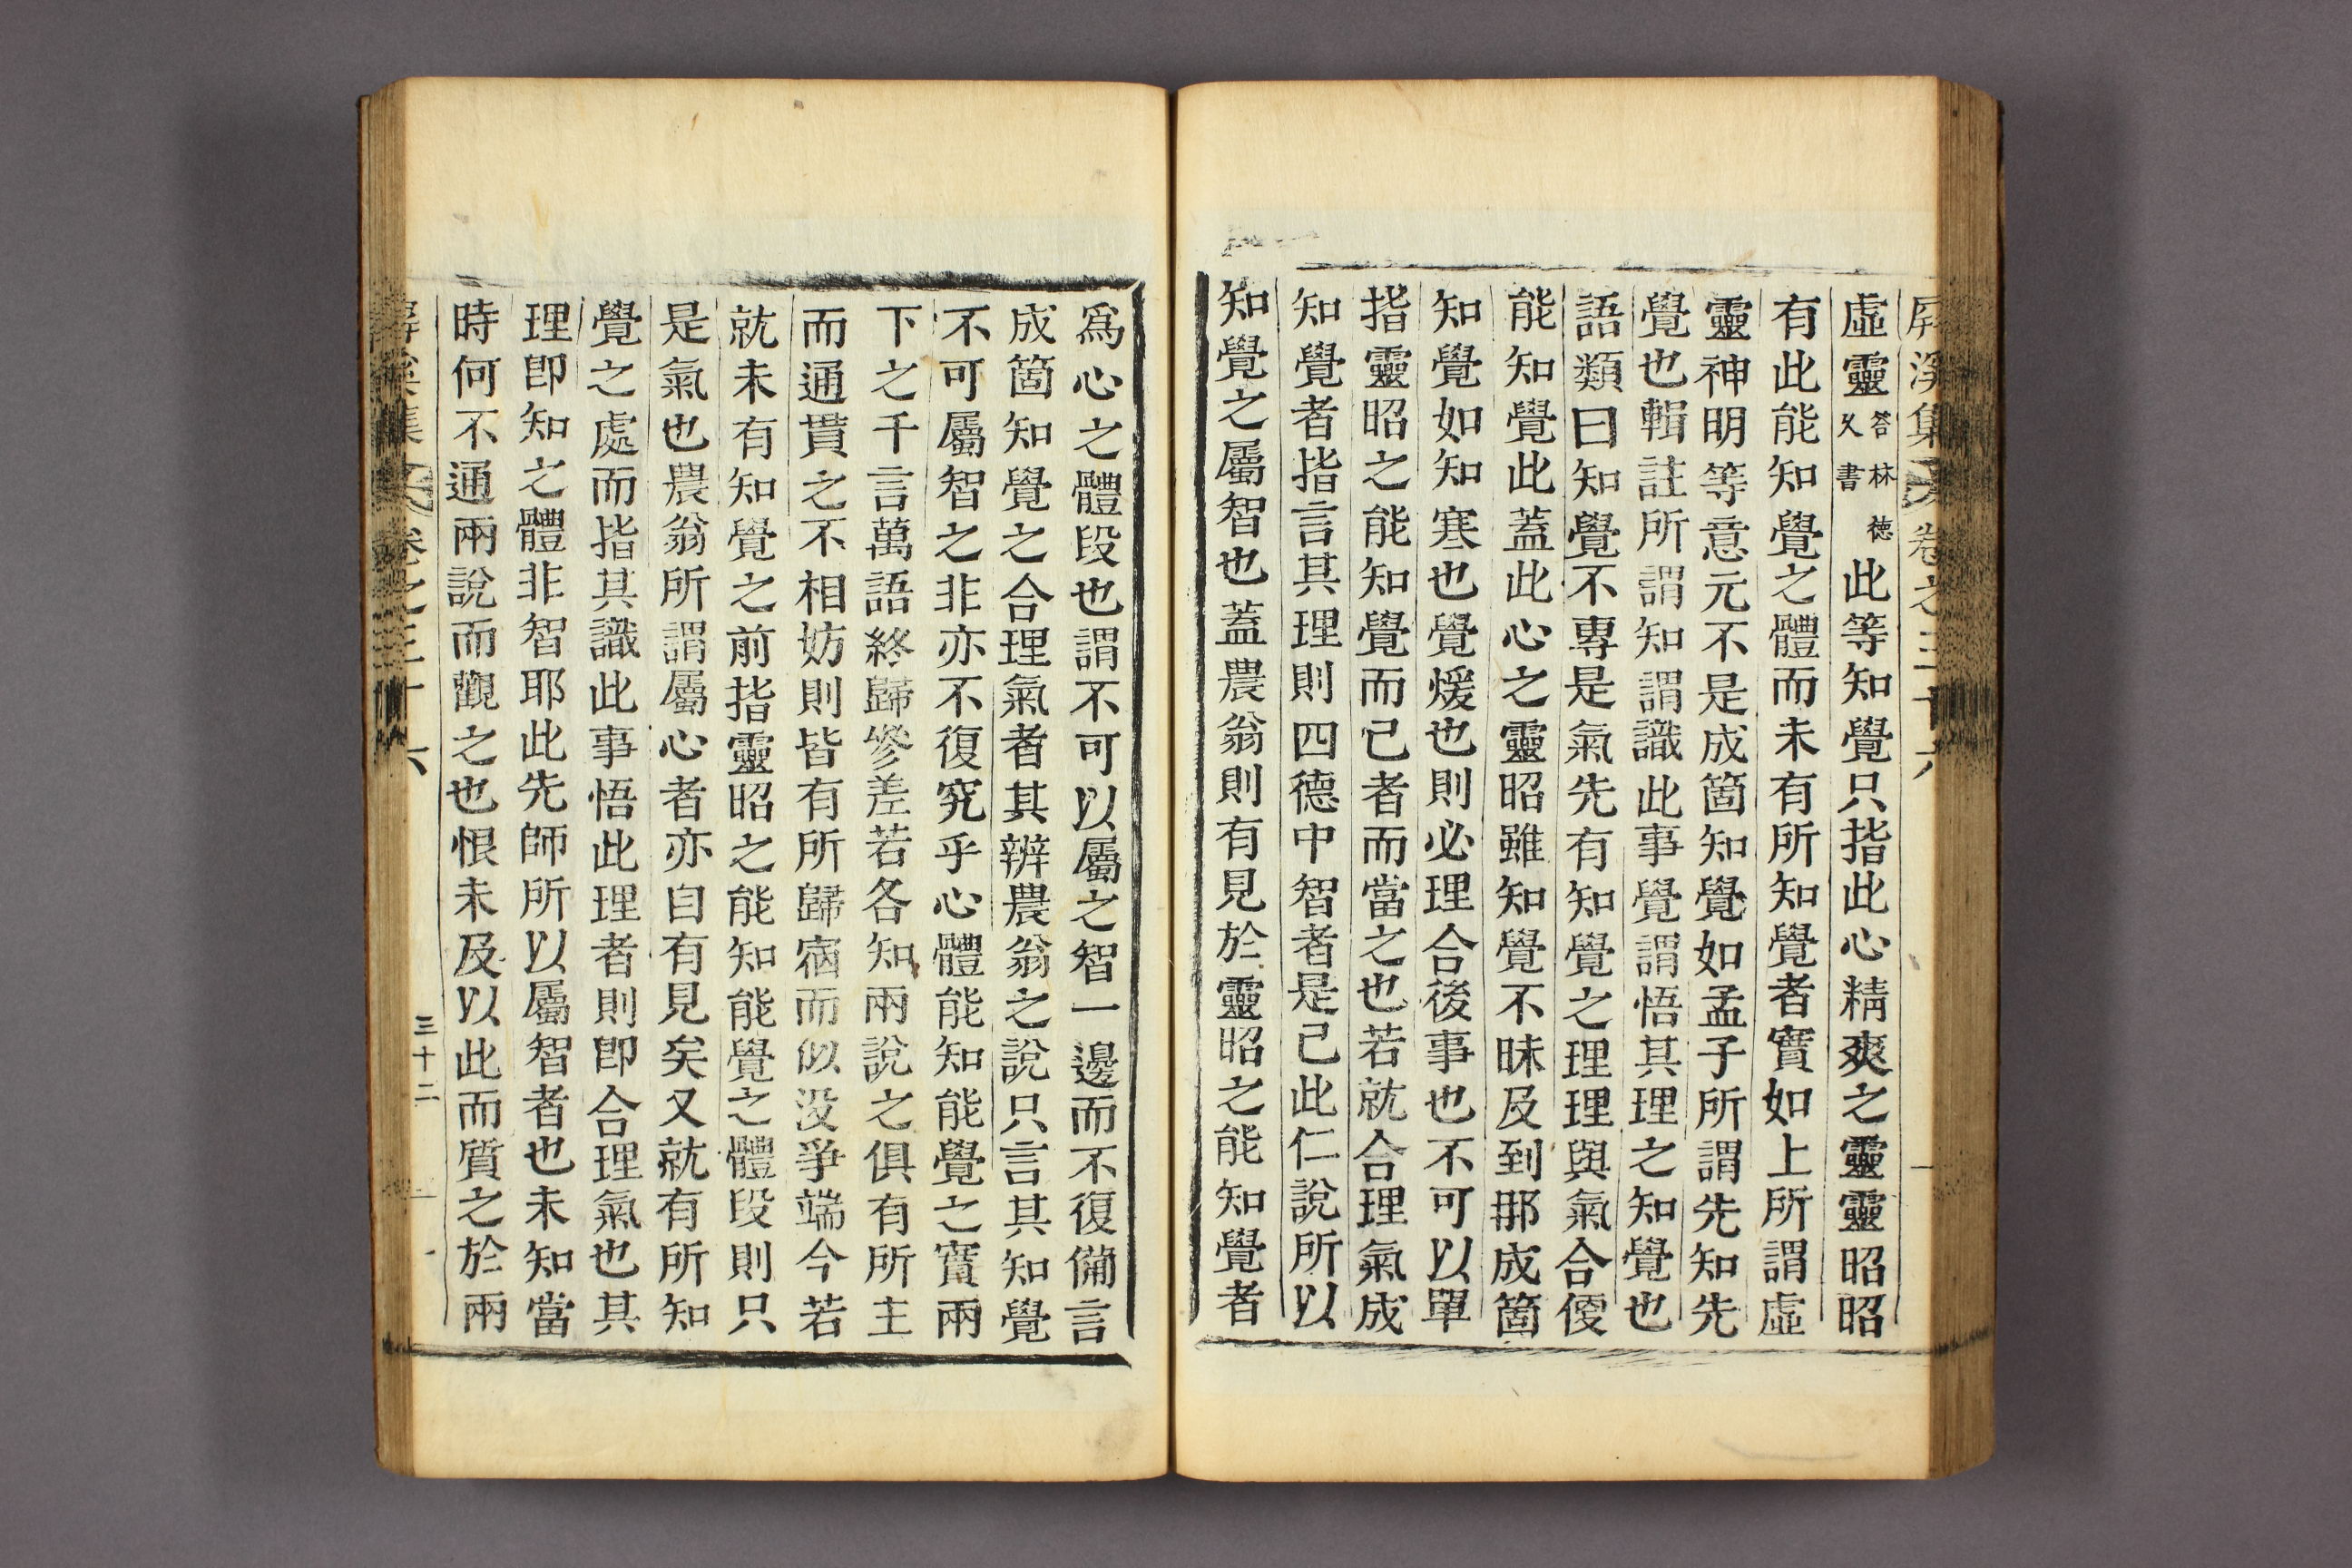 屛溪集 卷之三十六
虛靈答林德久書此等知覺只指此心精爽之靈靈昭昭
有此能知覺之體而未有所知覺者實如上所謂虛
靈神明等意元不是成箇知覺如孟子所謂先知先
覺也輯註所謂知謂識此事覺謂悟其理之知覺也
語類曰知覺不專是氣先有知覺之理理與氣合便
能知覺此蓋此心之靈昭雖知覺不昧及到那成箇
知覺如知寒也覺煖也則必理合後事也不可以單
指靈昭之能知覺而已者而當之也若就合理氣成
知覺者指言其理則四德中智者是已此仁說所以
知覺之屬智也蓋農翁則有見於靈昭之能知覺者
爲心之體段也謂不可以屬之智一邊而不復備言
成箇知覺之合理氣者其辨農翁之說只言其知覺
不可屬智之非亦不復究乎心體能知能覺之實兩
下之千言萬語終歸參差若各知兩說之俱有所主
而通貫之不相妨則皆有所歸宿而似沒爭端今若
就未有知覺之前指靈昭之能知能覺之體段則只
是氣也農翁所謂屬心者亦自有見矣又就有所知
覺之處而指其識此事悟此理者則卽合理氣也其
理卽知之體非智耶此先師所以屬智者也未知當
時何不通兩說而觀之也恨未及以此而質之於兩
屛溪集 卷之三十六 三十二